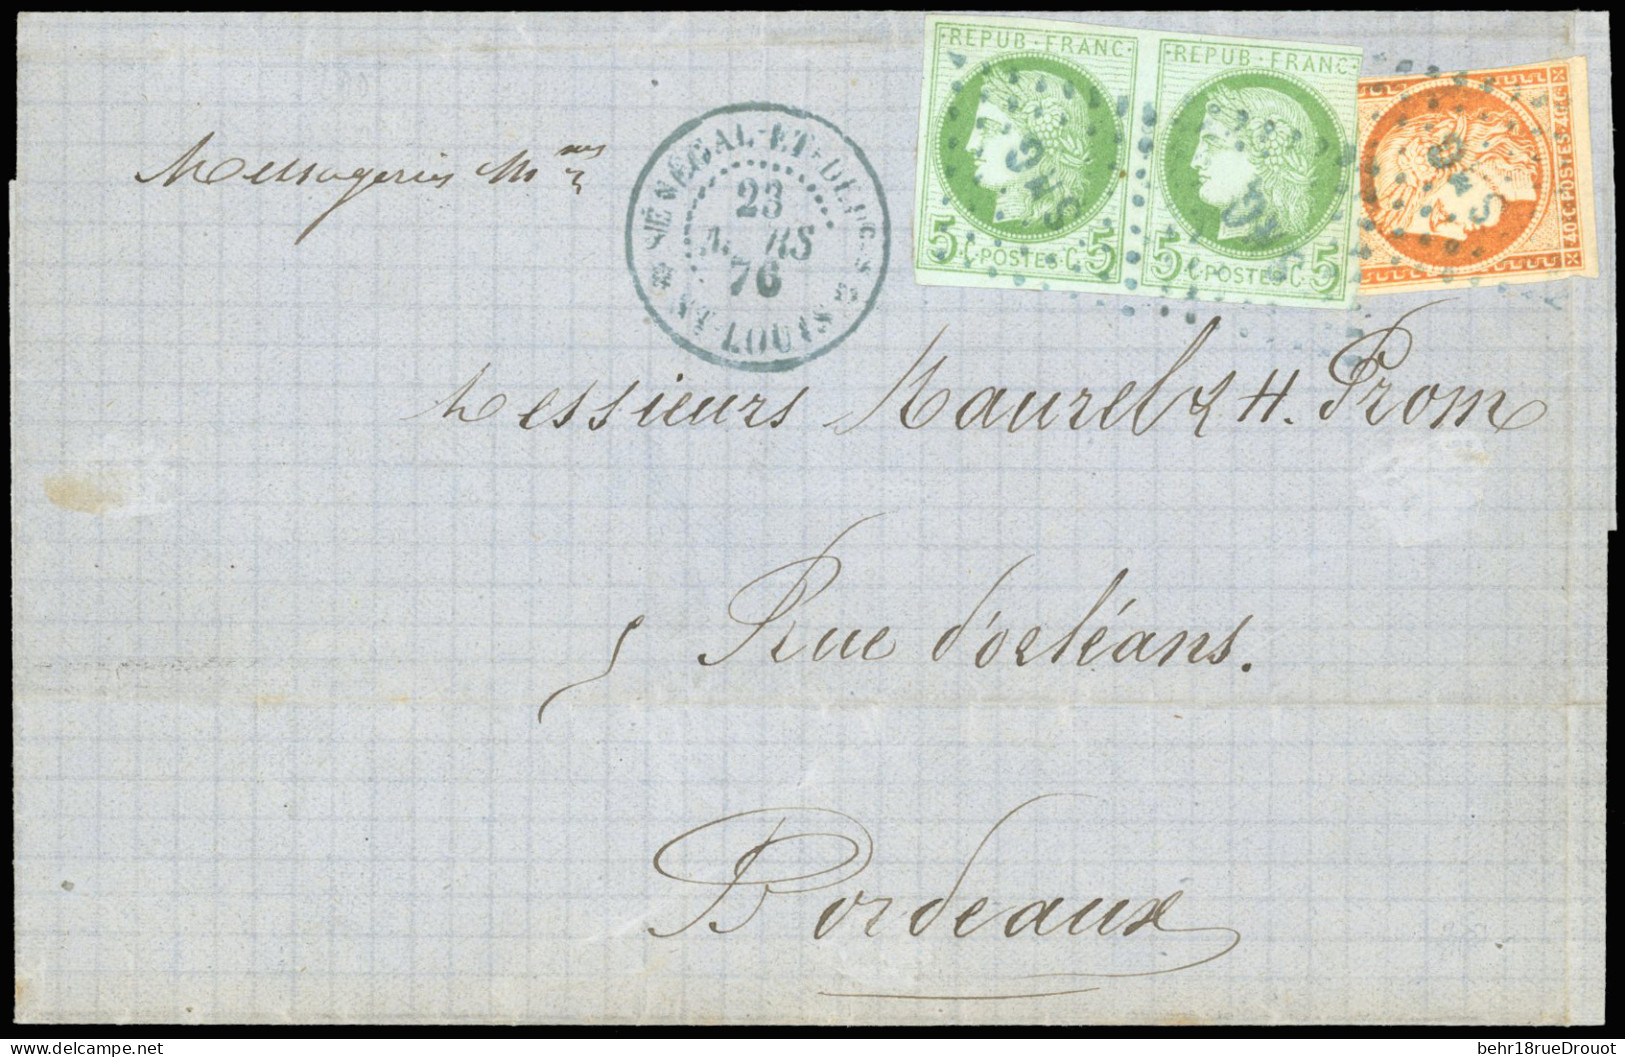 REPUB·FRANC· REPUB·FRANC·
5 C·POSTES·C 5 5 C·POSTES·C 5
SNG
SNG
SNG
40·C·POSTES·40·C
Messageries M.mes
SÉNÉGAL-ET-DÉPCES
23
MARS
76
ST-LOUIS
Messieurs Maurel & H. Prom
5 Rue d'orléans.
Bordeaux
behr18rueDrouot